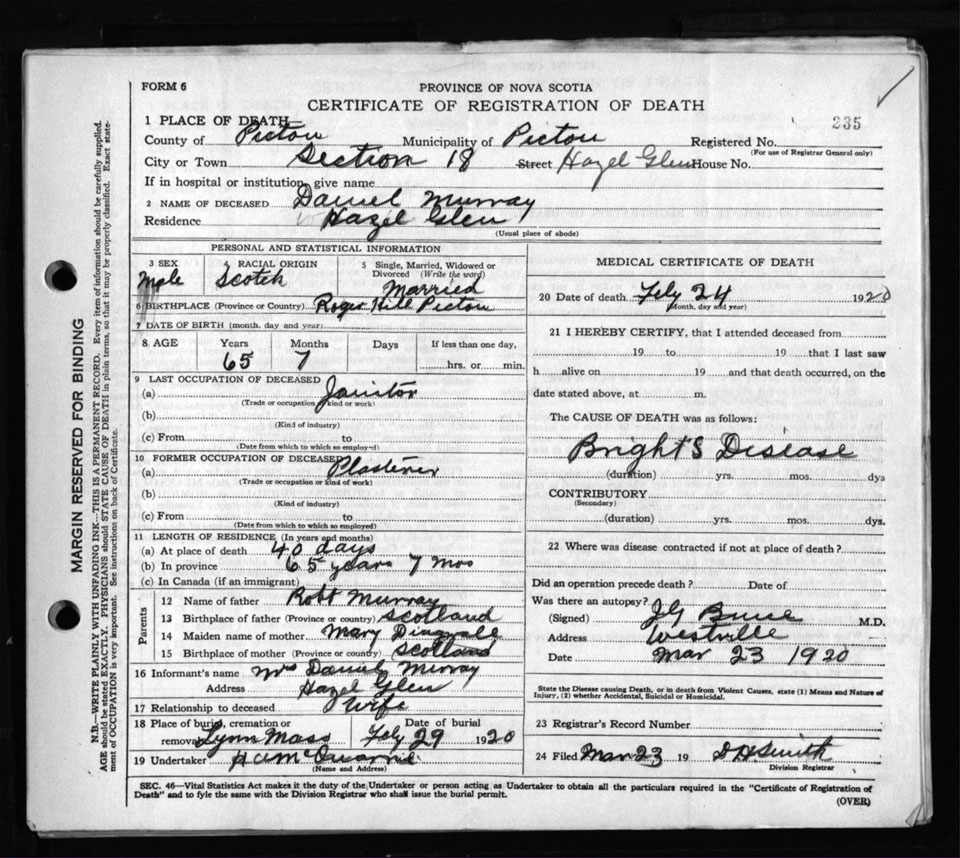 FORM 6
PROVINCE OF NOVA SCOTIA
CERTIFICATE OF REGISTRATION OF DEATH
1 PLACE OF DEATH
County of Pictou Municipality of Pictou Registered No. 235
(For use of Registrar General only)
City or Town Section 18 Street Hazel Glen House No.
If in hospital or institution, give name
2 NAME OF DECEASED Daniel Murray
Residence Hazel Glen
(Usual place of abode)
PERSONAL AND STATISTICAL INFORMATION
3 SEX 4 RACIAL ORIGIN 5 Single, Married, Widowed or
Divorced (Write the word)
Male Scotch Married
6 BIRTHPLACE (Province or Country) Roger Hill Pictou
7 DATE OF BIRTH (month, day and year)
8 AGE Years Months Days If less than one day,
65 7 hrs. or min.
9 LAST OCCUPATION OF DECEASED
(a) Janitor
(Trade or occupation, kind or work)
(b)
(Kind of industry)
(c) From to
(Date from which to which so employed)
10 FORMER OCCUPATION OF DECEASED
(a) Plasterer
(Trade or occupation or kind of work)
(b)
(Kind of industry)
(c) From to
(Date from which to which so employed)
11 LENGTH OF RESIDENCE (In years and months)
(a) At place of death 40 days
(b) In province 65 years 7 mos
(c) In Canada (if an immigrant)
Parents
12 Name of father Robt Murray
13 Birthplace of father (Province or Country) Scotland
14 Maiden name of mother Mary
15 Birthplace of mother (Province or country) Scotland
16 Informant's name Mrs Daniel Murray
Address Hazel Glen
17 Relationship to deceased Wife
18 Place of burial, cremation or Date of burial
removal Lynn Mass Feb 29 1920
19 Undertaker
(Name and Address)
MEDICAL CERTIFICATE OF DEATH
20 Date of death Feb 24 1920
(Month, day and year)
21 I HEREBY CERTIFY, that I attended deceased from
19 to 19 that I last saw
h alive on 19 and that death occurred, on the
date stated above, at m.
The CAUSE OF DEATH was as follows:
Bright's Disease
(duration) yrs. mos. dys
CONTRIBUTORY
(Secondary)
(duration) yrs. mos. dys.
22 Where was disease contracted if not at place of death?
Did an operation precede death? Date of
Was there an autopsy?
(Signed) M.D.
Address Westville
Date Mar 23 1920
State the Disease causing Death, or in death from Violent Causes, state (1) Means and Nature of
Injury, (2) whether Accidental, Suicidal or Homicidal.
23 Registrar's Record Number
24 Filed Mar 23 19 Smith
Division Registrar
SEC. 46—Vital Statistics Act makes it the duty of the Undertaker or person acting as Undertaker to obtain all the particulars required in the "Certificate of Registration of
Death" and to fyle the same with the Division Registrar who shall issue the burial permit.
(OVER)
MARGIN RESERVED FOR BINDING
N.B.—WRITE PLAINLY WITH UNFADING INK—THIS IS A PERMANENT RECORD. Every item of information should be carefully supplied.
AGE should be stated EXACTLY. PHYSICIANS should STATE CAUSE OF DEATH in plain terms, so that it may be properly classified. Exact state-
ment of OCCUPATION is very important. See instructions on back of Certificate.